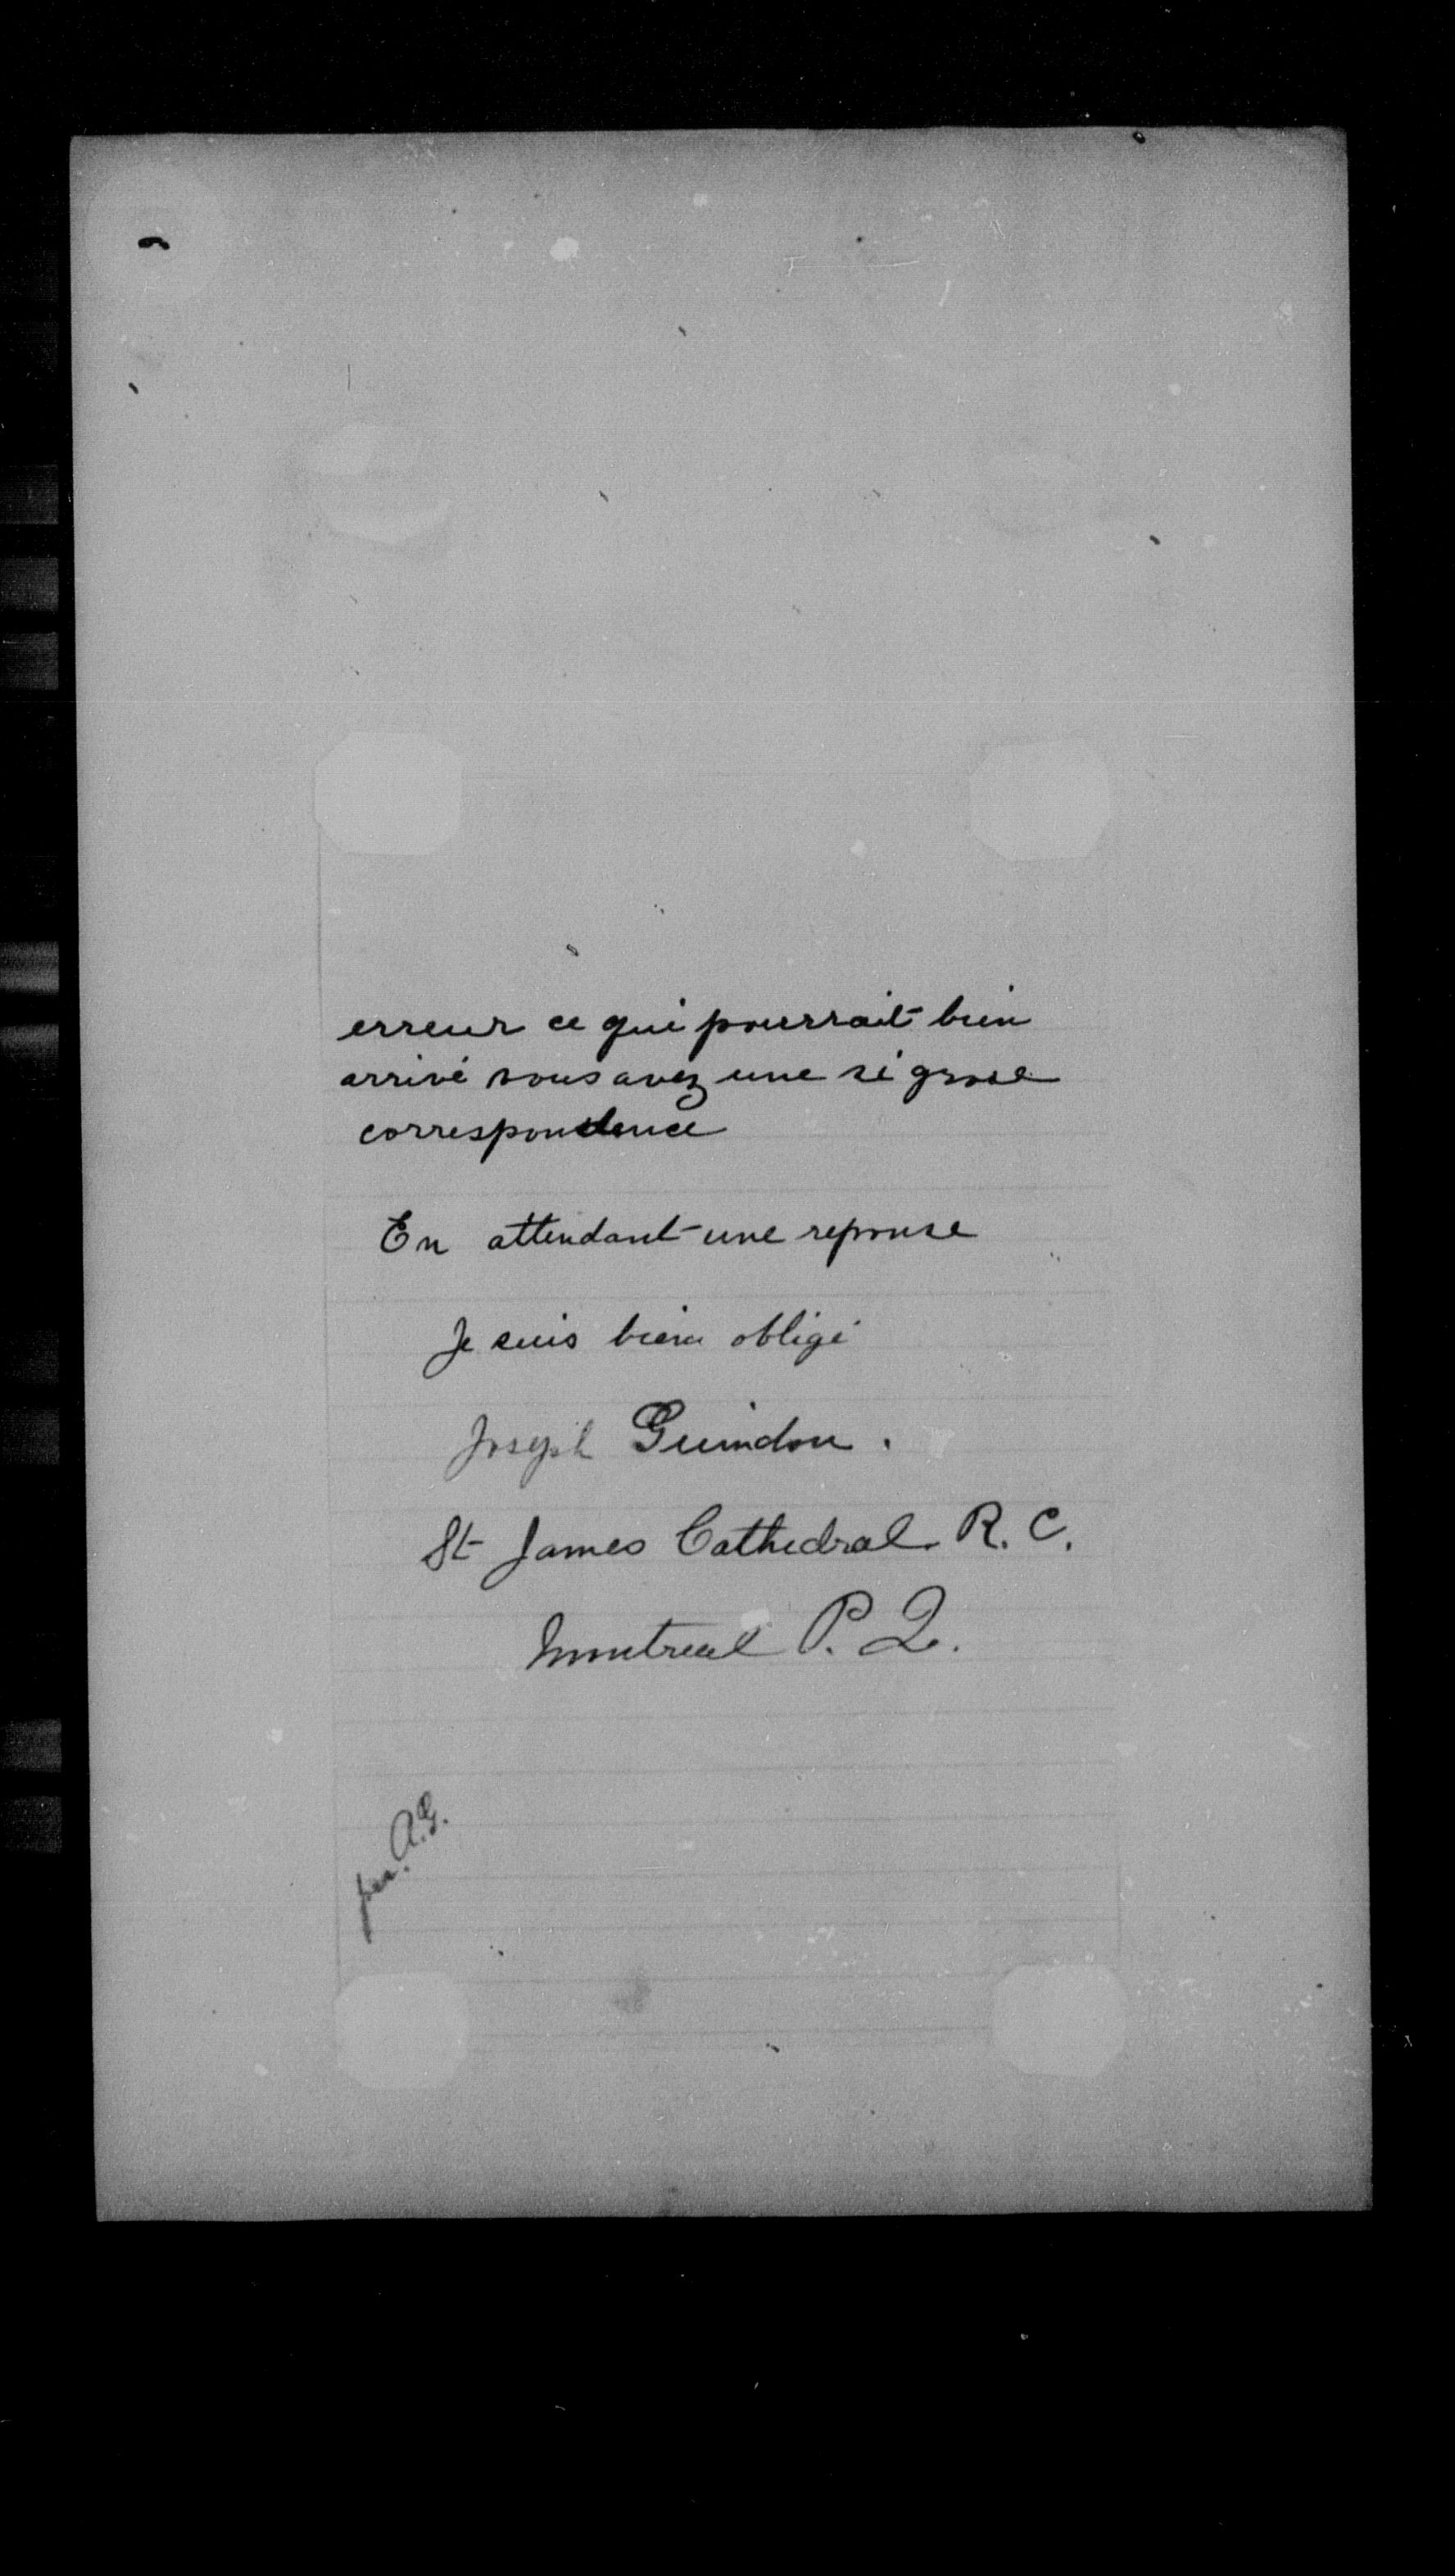 erreur ce qui pourrait bien
arrivé vous avez une si grose
correspondence
En attendant une reponse
Je suis bien obligé
Joseph Guindon.
St James Cathedral R. C.
Montreal P. Q.
per. A.G.